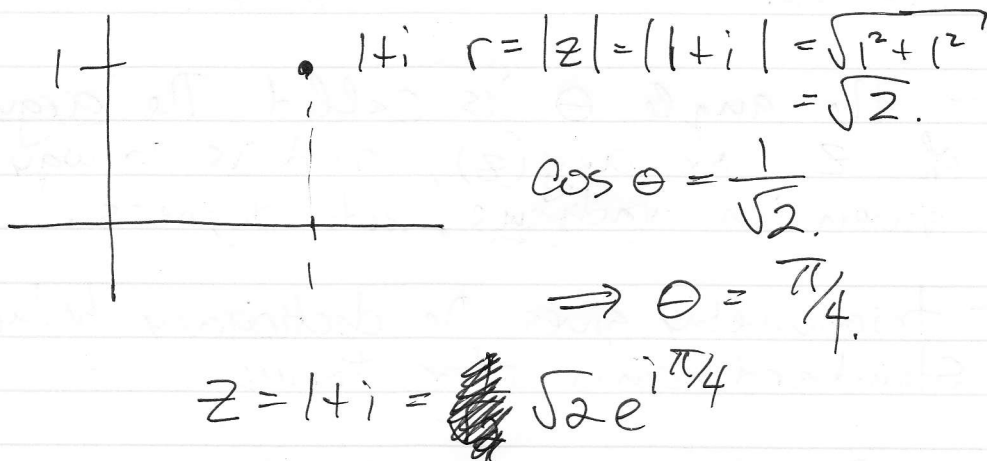 1 1+i r = |z| = |1+i| = √(1² + 1²)
= √2.
cos θ = 1/√2.
1
⇒ θ = π/4.
z = 1+i = √2 e^{iπ/4}